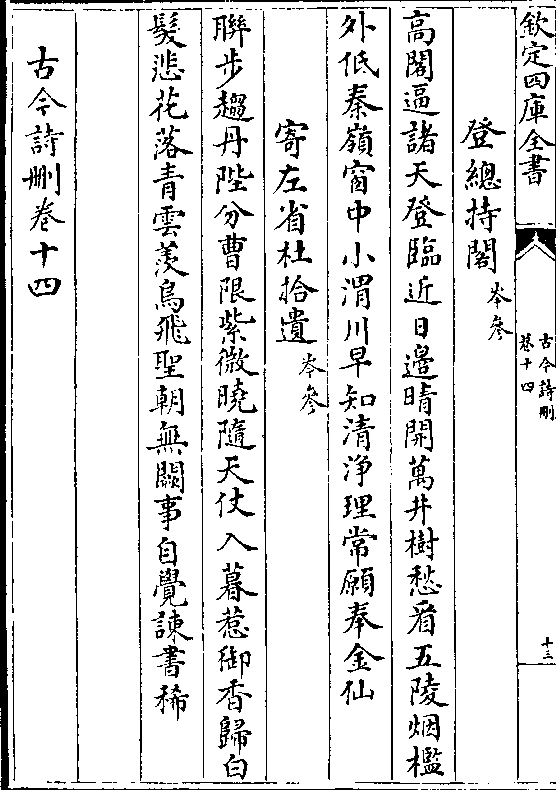 欽定四庫全書
古今詩刪
卷十四
十三
登總持閣 岑參
高閣逼諸天登臨近日邊晴開萬井樹愁看五陵烟檻
外低秦嶺窗中小渭川早知清浄理常願奉金仙
寄左省杜拾遺 岑參
聯步趨丹陛分曹限紫微曉隨天仗入暮惹御香歸白
髮悲花落青雲羨鳥飛聖朝無闕事自覺諫書稀
古今詩刪卷十四